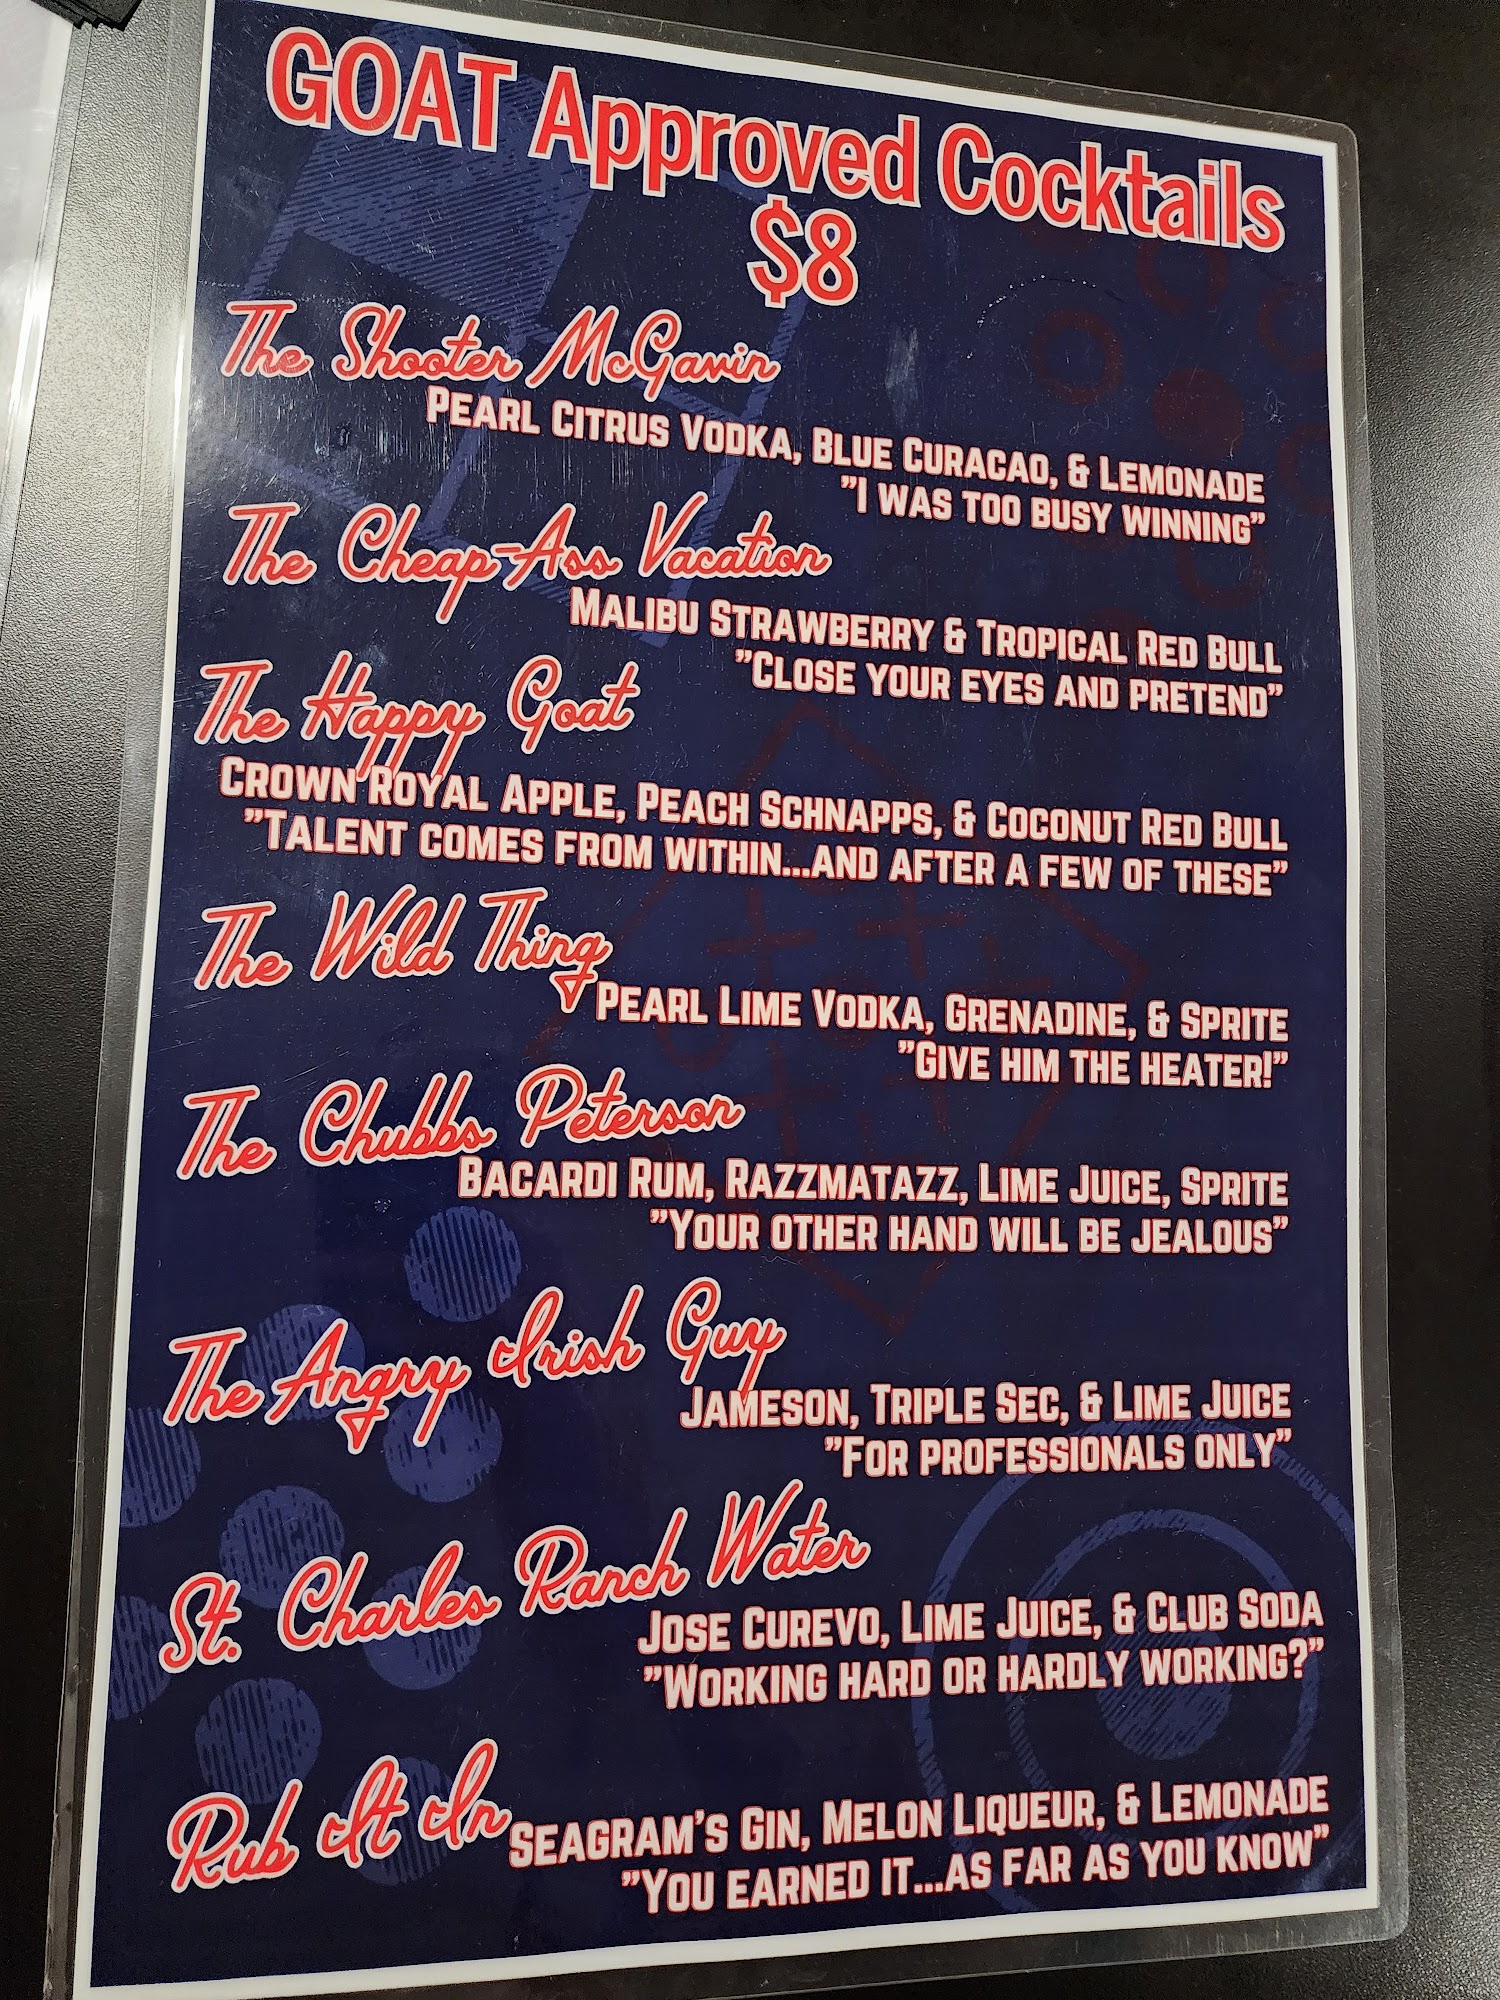 GOAT Approved Cocktails
$8
The Shooter McGavin
Pearl Citrus Vodka, Blue Curacao, & Lemonade
"I was too busy winning"
The Cheap-Ass Vacation
Malibu Strawberry & Tropical Red Bull
"Close your eyes and pretend"
The Happy Goat
Crown Royal Apple, Peach Schnapps, & Coconut Red Bull
"Talent comes from within...and after a few of these"
The Wild Thing
Pearl Lime Vodka, Grenadine, & Sprite
"Give him the heater!"
The Chubbs Peterson
Bacardi Rum, Razzmatazz, Lime Juice, Sprite
"Your other hand will be jealous"
The Angry Irish Guy
Jameson, Triple Sec, & Lime Juice
"For professionals only"
St. Charles Ranch Water
Jose Curevo, Lime Juice, & Club Soda
"Working hard or hardly working?"
Rub It In
Seagram's Gin, Melon Liqueur, & Lemonade
"You earned it...as far as you know"